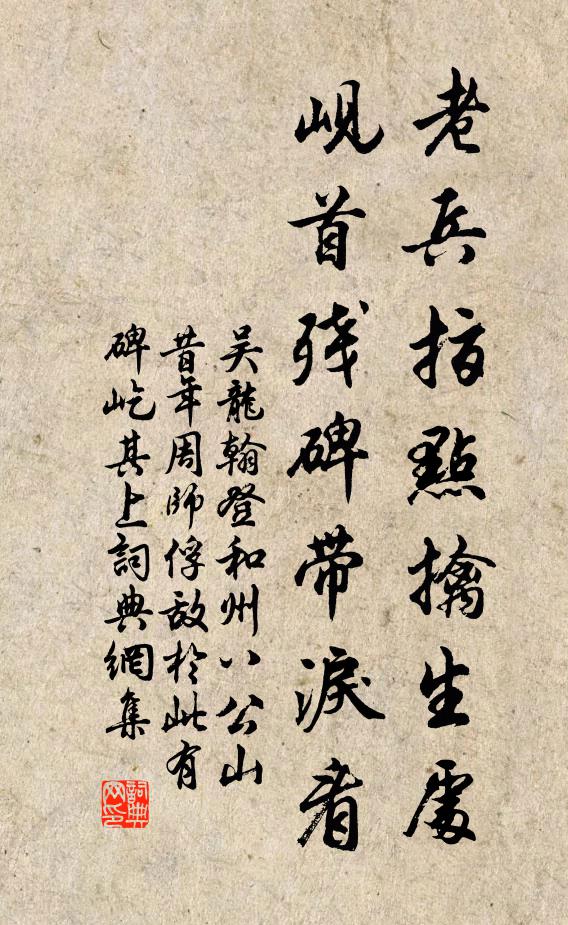 老兵指點擒生處
峴首殘碑帶淚看
吳龍翰登和州八公山
昔年周師俘敌於此有
碑屹其上詞典網集
詞典网印